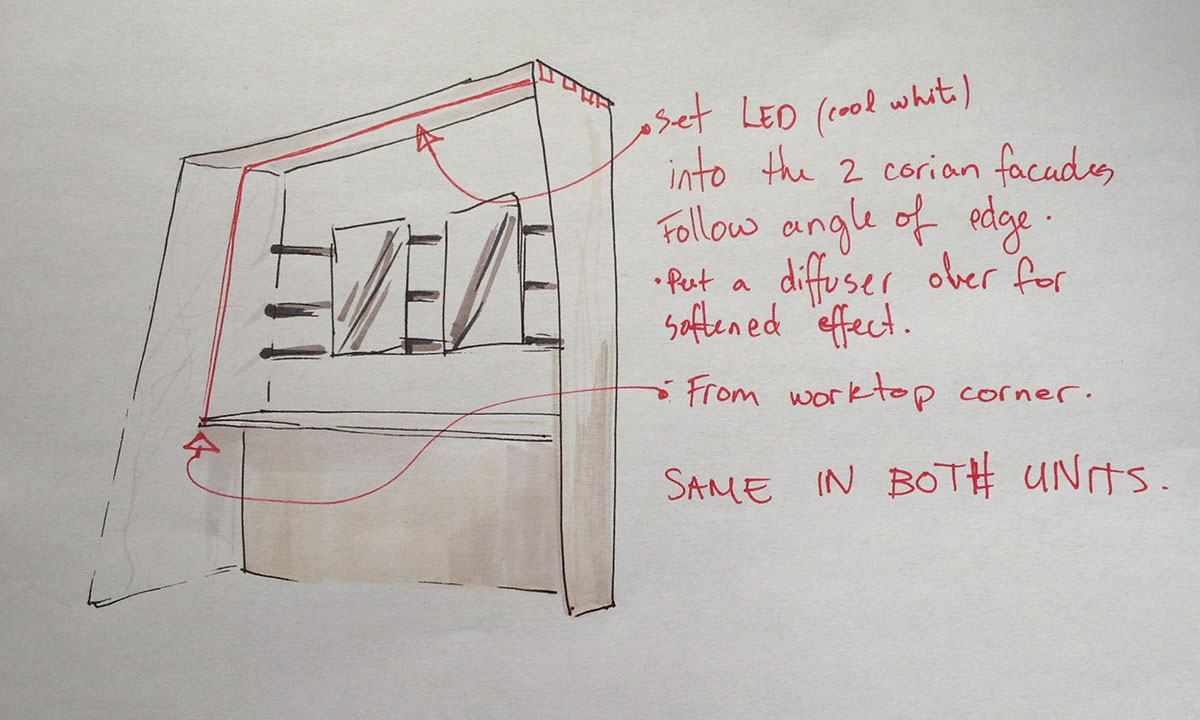 • Set LED (cool white)
into the 2 corian facades
Follow angle of edge.
• Put a diffuser over for
softened effect.
• From worktop corner.
SAME IN BOTH UNITS.